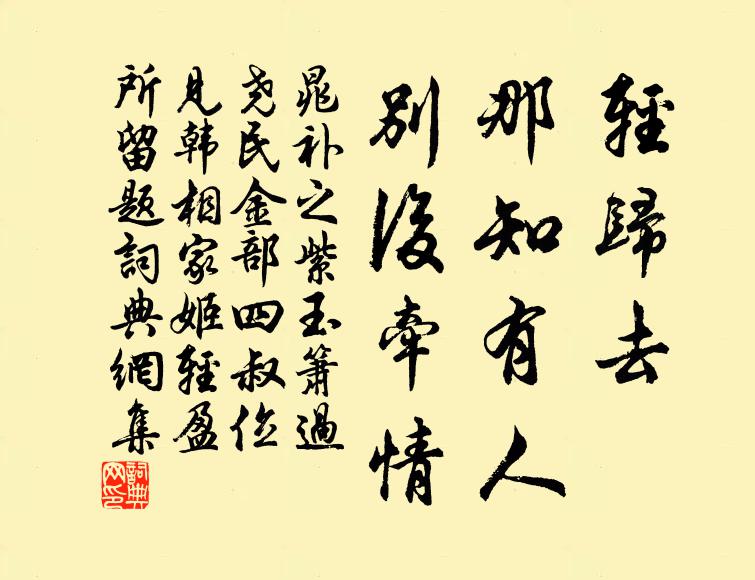 輕歸去
那知有人
別後牽情
晁补之紫玉簫過
尧民金部四叔位
見韩相家姬輕盈
所留题詞典網集
詞典網印